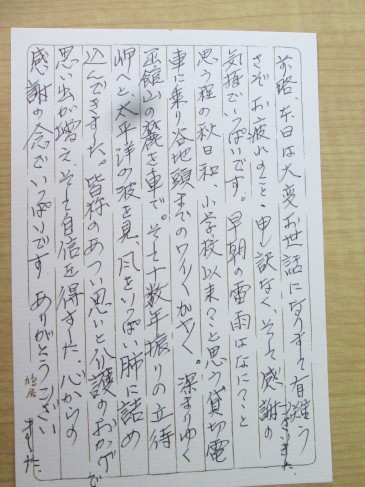 前略、本日は大変お世話になりまして有難う
ございました
さぞお疲れのこと、申訳なく、そして感謝の
気持でいっぱいです。早朝の雷雨はなに?こと
思う程の秋日和、小学校以来?こと思う貸切電
車に乗り谷地頭までのワイワイガヤガヤ。深まりゆく
函館山の麓を車で。そして十数年振りの立待
岬へと、太平洋の波を見、風をいっぱい肺に詰め
込んできました。皆称のあつい思いと介護のおかげで
思い出が増え、そして自信を得ました、心からの
感謝の念でいっぱいです ありがとうござい
ました